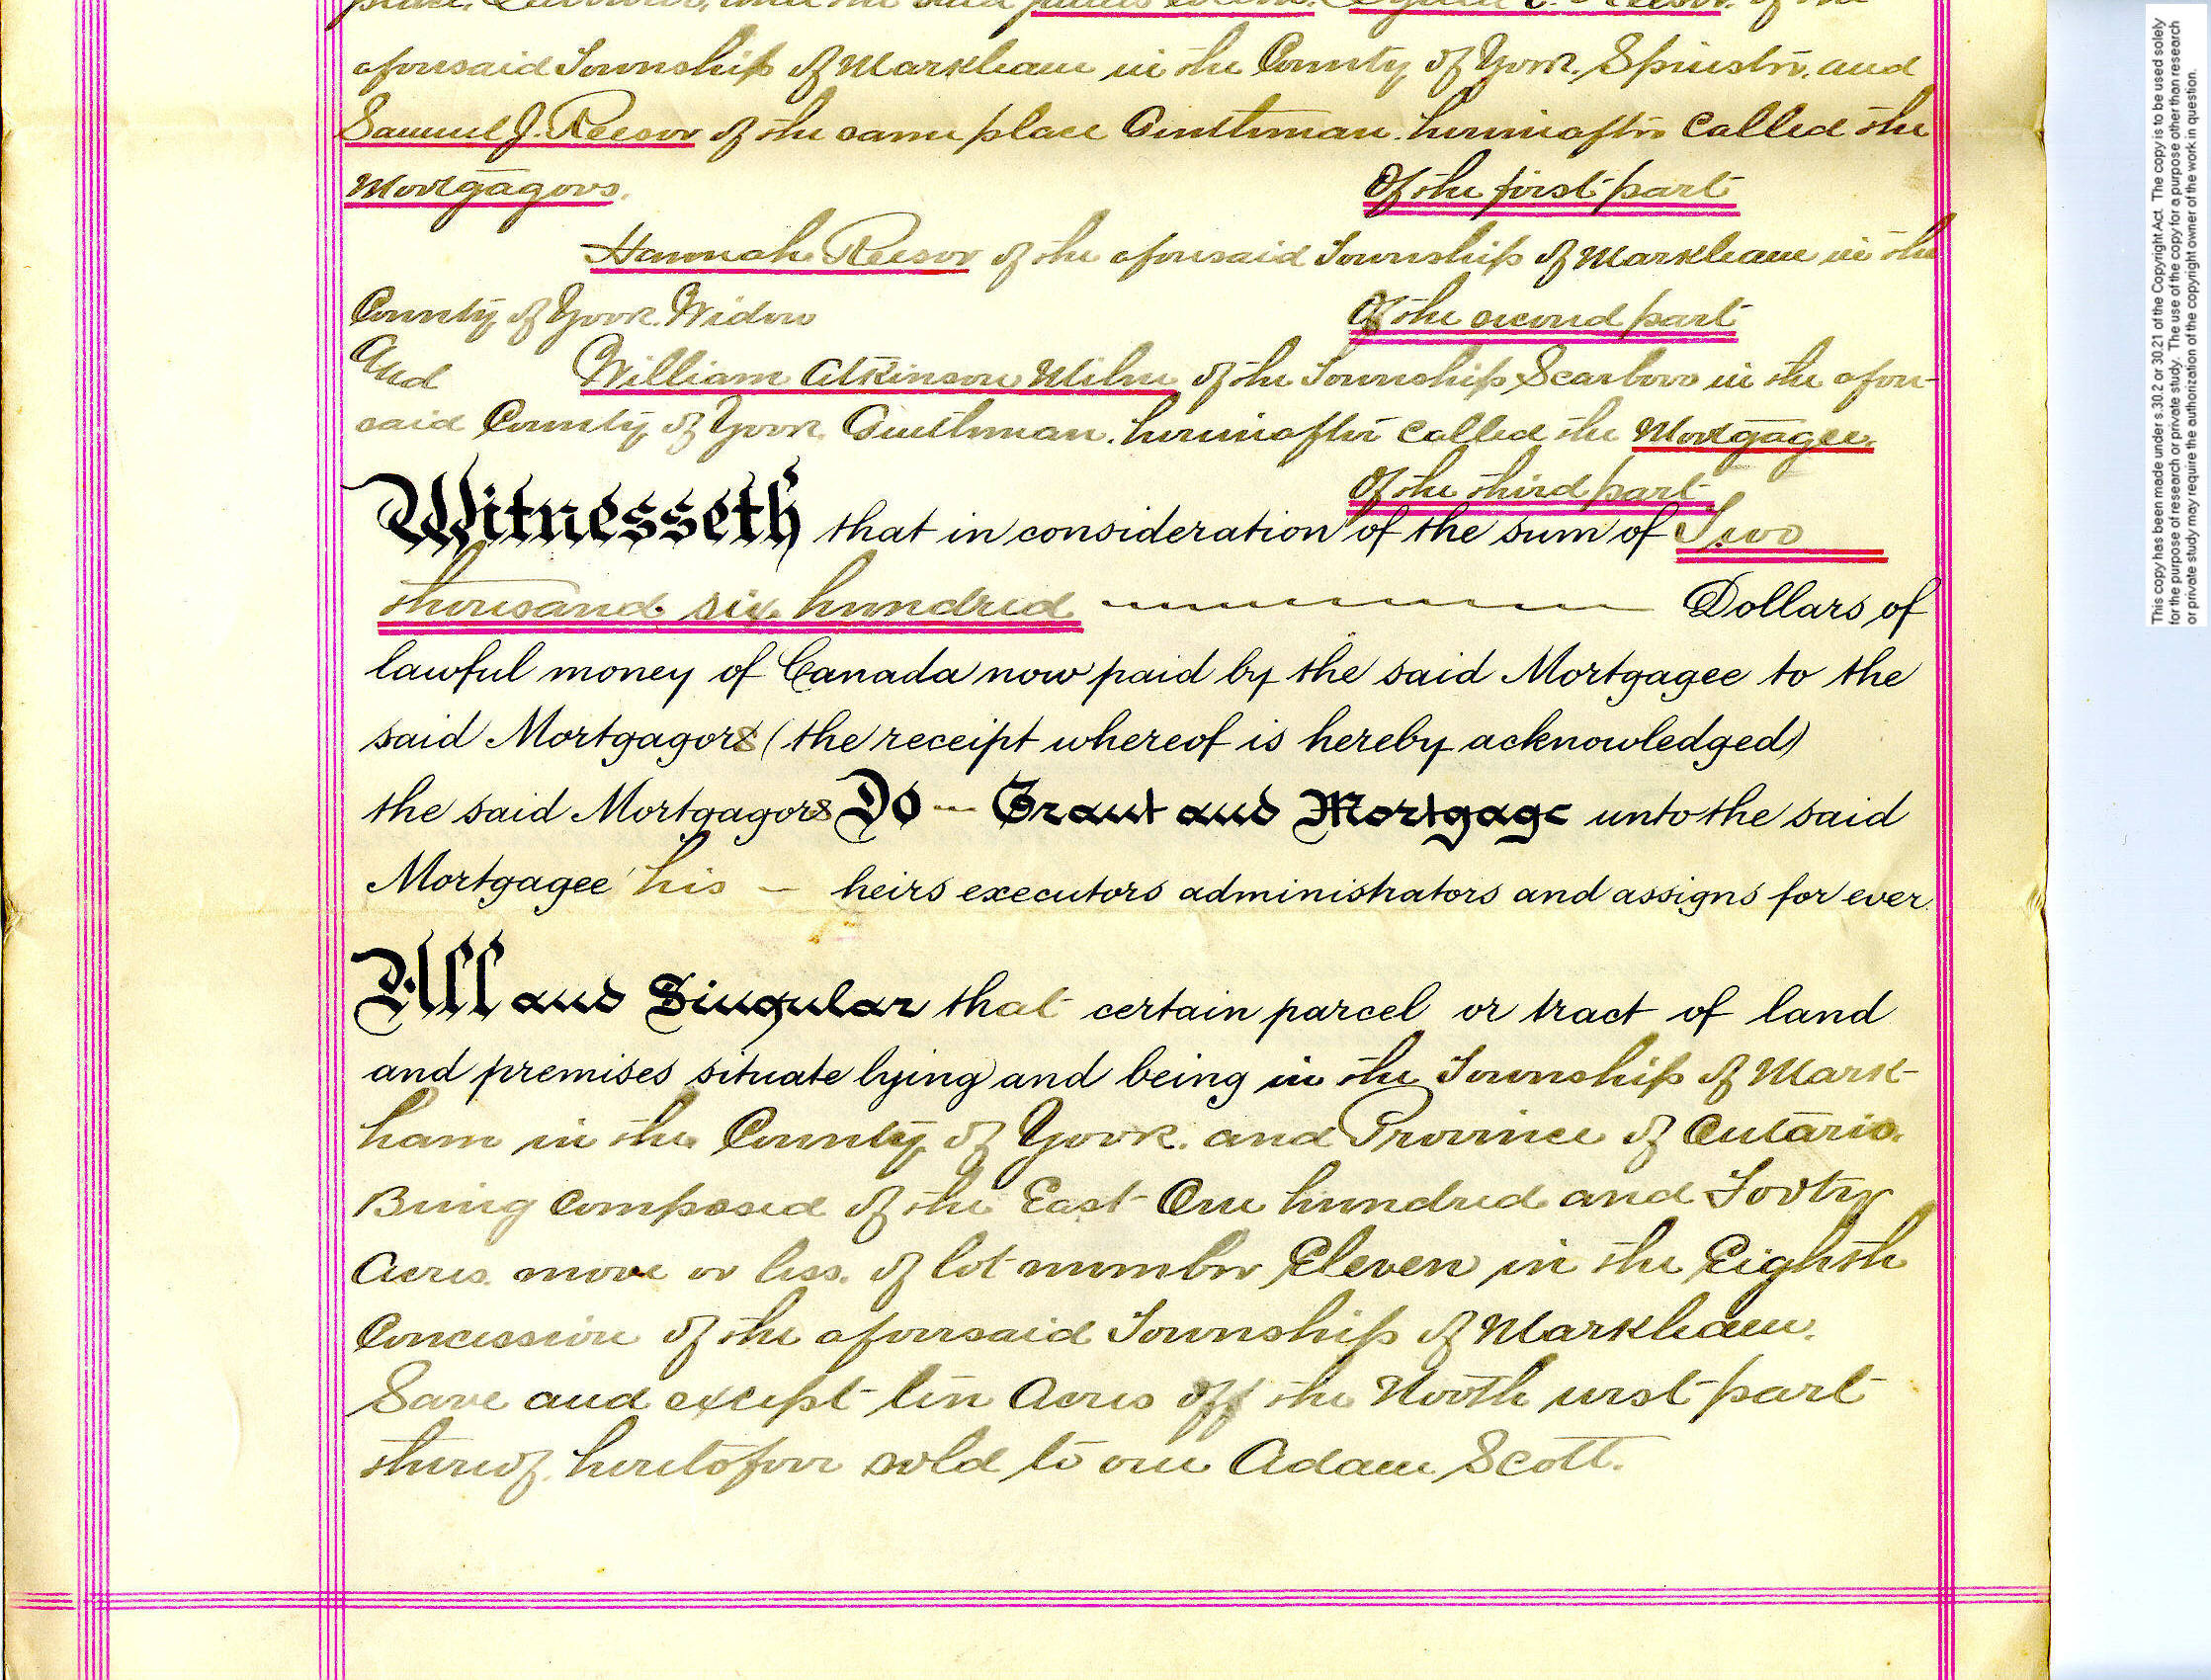 aforesaid Township of Markham in the County of York, Spinster, and
Samuel J. Reesor of the same place Gentleman. hereinafter Called the
Mortgagors.
Of the first part
Hannah Reesor of the aforesaid Township of Markham in the
County of York. Widow
Of the second part
And William Atkinson Milne of the Township Scarboro in the afore-
said County of York, Gentleman. hereinafter called the Mortgagee.
Of the third part
Witnesseth that in consideration of the sum of Two
thousand six hundred Dollars of
lawful money of Canada now paid by the said Mortgagee to the
said Mortgagors (the receipt whereof is hereby acknowledged)
the said Mortgagors Do Grant and Mortgage unto the said
Mortgagee his heirs executors administrators and assigns for ever.
All and Singular that certain parcel or tract of land
and premises situate lying and being in the Township of Mark-
ham in the County of York. and Province of Ontario.
Being Composed of the East One hundred and Forty
Acres. more or less. of lot number Eleven in the Eighth
Concession of the aforesaid Township of Markham.
Save and except ten Acres off the North west part
thereof. heretofore sold to one Adam Scott.
This copy has been made under s.30.2 or 30.21 of the Copyright Act. The copy is to be used solely
for the purpose of research or private study. The use of the copy for a purpose other than research
or private study may require the authorization of the copyright owner of the work in question.